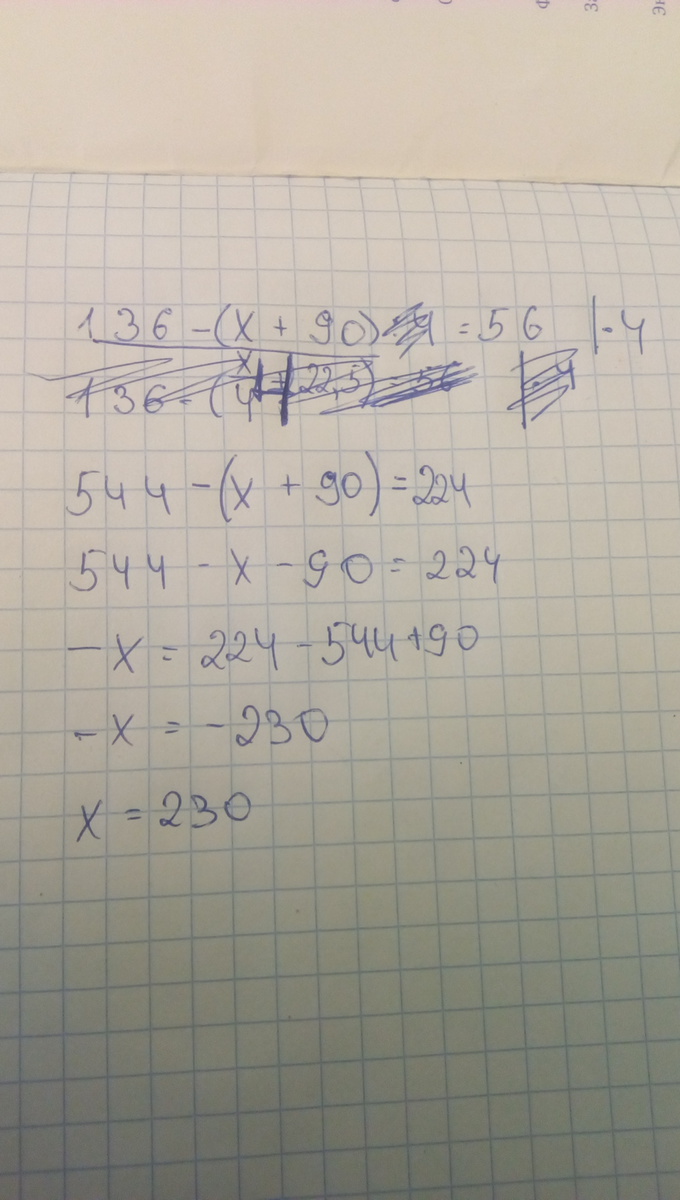 136 - (x + 90) = 56 | · 4
136 - (x/4 + 22,5)
544 - (x + 90) = 224
544 - x - 90 = 224
-x = 224 - 544 + 90
-x = -230
x = 230